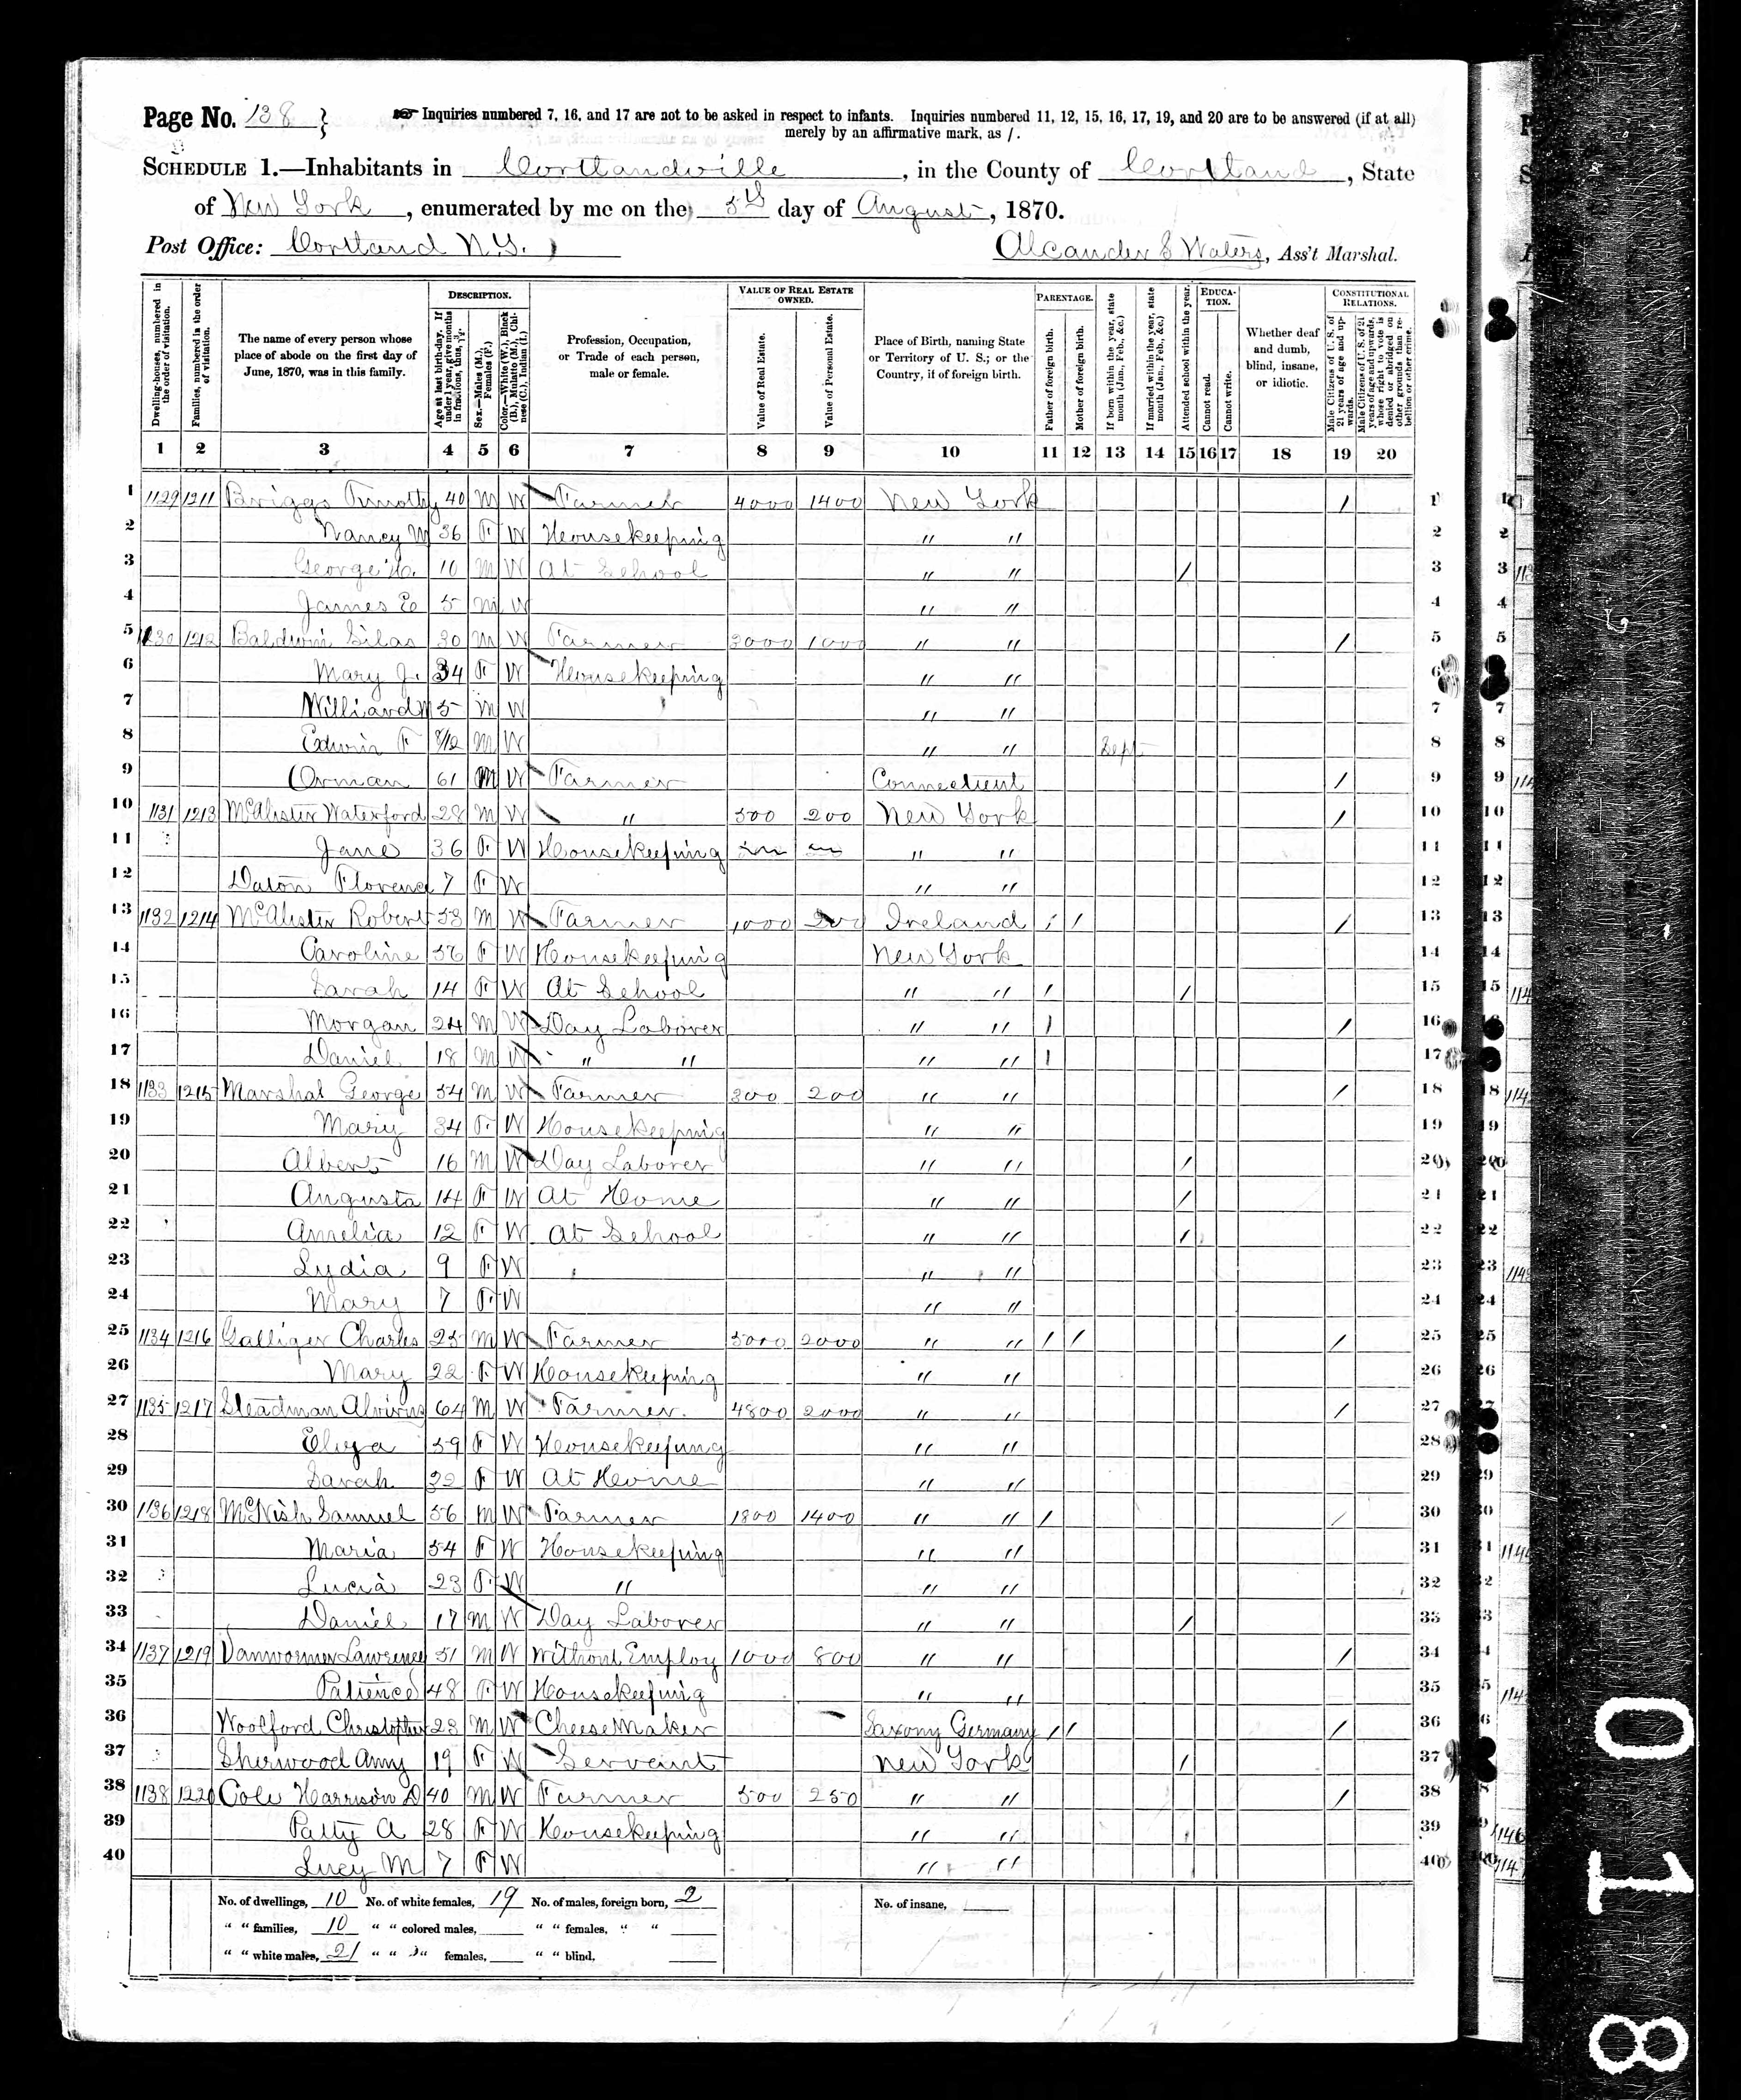 Page No. 138 } ☞ Inquiries numbered 7, 16, and 17 are not to be asked in respect to infants. Inquiries numbered 11, 12, 15, 16, 17, 19, and 20 are to be answered (if at all)
merely by an affirmative mark, as /.
SCHEDULE 1.—Inhabitants in Cortlandville, in the County of Cortland, State
of New York, enumerated by me on the 5th day of August, 1870.
Post Office: Cortland N.Y.
Alcander S Waters, Ass't Marshal.
Dwelling-houses, numbered in the order of visitation.
Families, numbered in the order of visitation.
The name of every person whose place of abode on the first day of June, 1870, was in this family.
DESCRIPTION.
Age at last birth-day. If under 1 year, give months in fractions, thus, 3/12.
Sex.—Males (M.), Females (F.)
Color.—White (W.), Black (B.), Mulatto (M.), Chinese (C.), Indian (I.)
Profession, Occupation, or Trade of each person, male or female.
VALUE OF REAL ESTATE OWNED.
Value of Real Estate.
Value of Personal Estate.
Place of Birth, naming State or Territory of U. S.; or the Country, if of foreign birth.
PARENTAGE.
Father of foreign birth.
Mother of foreign birth.
If born within the year, state month (Jan., Feb., &c.)
If married within the year, state month (Jan., Feb., &c.)
Attended school within the year.
EDUCATION.
Cannot read.
Cannot write.
Whether deaf and dumb, blind, insane, or idiotic.
CONSTITUTIONAL RELATIONS.
Male Citizens of U. S. of 21 years of age and upwards.
Male Citizens of U. S. of 21 years of age and upwards, whose right to vote is denied or abridged on other grounds than rebellion or other crime.
1 2 3 4 5 6 7 8 9 10 11 12 13 14 15 16 17 18 19 20
1 1129 1211 Briggs Timothy 40 M W Farmer 4000 1400 New York / 1
2 Nancy M 36 F W Housekeeping " " 2
3 George 10 M W At School " " / 3
4 James E 5 M W " " 4
5 1130 1212 Baldwin Silas 30 M W Farmer 3000 1000 " " / 5
6 Mary J. 34 F W Housekeeping " " 6
7 Williard 5 M W " " 7
8 Edwin F 8/12 M W " " Sept 8
9 Orman 61 M W Farmer Connecticut / 9
10 1131 1213 McAlister Waterford 28 M W " 500 200 New York / 10
11 Jane 36 F W Housekeeping " " 11
12 Florence 7 F W " " 12
13 1132 1214 McAlister Robert 53 M W Farmer 1000 200 Ireland / / / 13
14 Caroline 56 F W Housekeeping New York 14
15 Sarah 14 F W At School " " / / 15
16 Morgan 24 M W Day Laborer " " / / 16
17 Daniel 18 M W " " " " / 17
18 1133 1215 Marshal George 54 M W Farmer 300 200 " " / 18
19 Mary 34 F W Housekeeping " " 19
20 Albert 16 M W Day Laborer " " / 20
21 Augusta 14 F W At Home " " / 21
22 Amelia 12 F W At School " " / 22
23 Lydia 9 F W " " 23
24 Mary 7 F W " " 24
25 1134 1216 Galliger Charles 25 M W Farmer 5000 2000 " " / / / 25
26 Mary 22 F W Housekeeping " " 26
27 1135 1217 Steadman 64 M W Farmer 4800 2000 " " / 27
28 Eliza 59 F W Housekeeping " " 28
29 Sarah 32 F W At Home " " 29
30 1136 1218 McNish Samuel 56 M W Farmer 1800 1400 " " / / 30
31 Maria 54 F W Housekeeping " " 31
32 Lucia 23 F W " " " 32
33 Daniel 17 M W Day Laborer " " / 33
34 1137 1219 Vanwormer Lawrence 51 M W Without Employ 1000 800 " " / 34
35 Patience 48 F W Housekeeping " " 35
36 Woolford Christopher 23 M W Cheese Maker Saxony Germany / / / 36
37 Sherwood Amy 19 F W Servant New York / 37
38 1138 1220 Cole Harrison D 40 M W Farmer 500 250 " " / 38
39 Patty A 28 F W Housekeeping " " 39
40 Lucy M 7 F W " " 40
No. of dwellings, 10 No. of white females, 19 No. of males, foreign born, 2 No. of insane,
" " families, 10 " " colored males, " " females, " "
" " white males, 21 " " " females, " " blind,
018